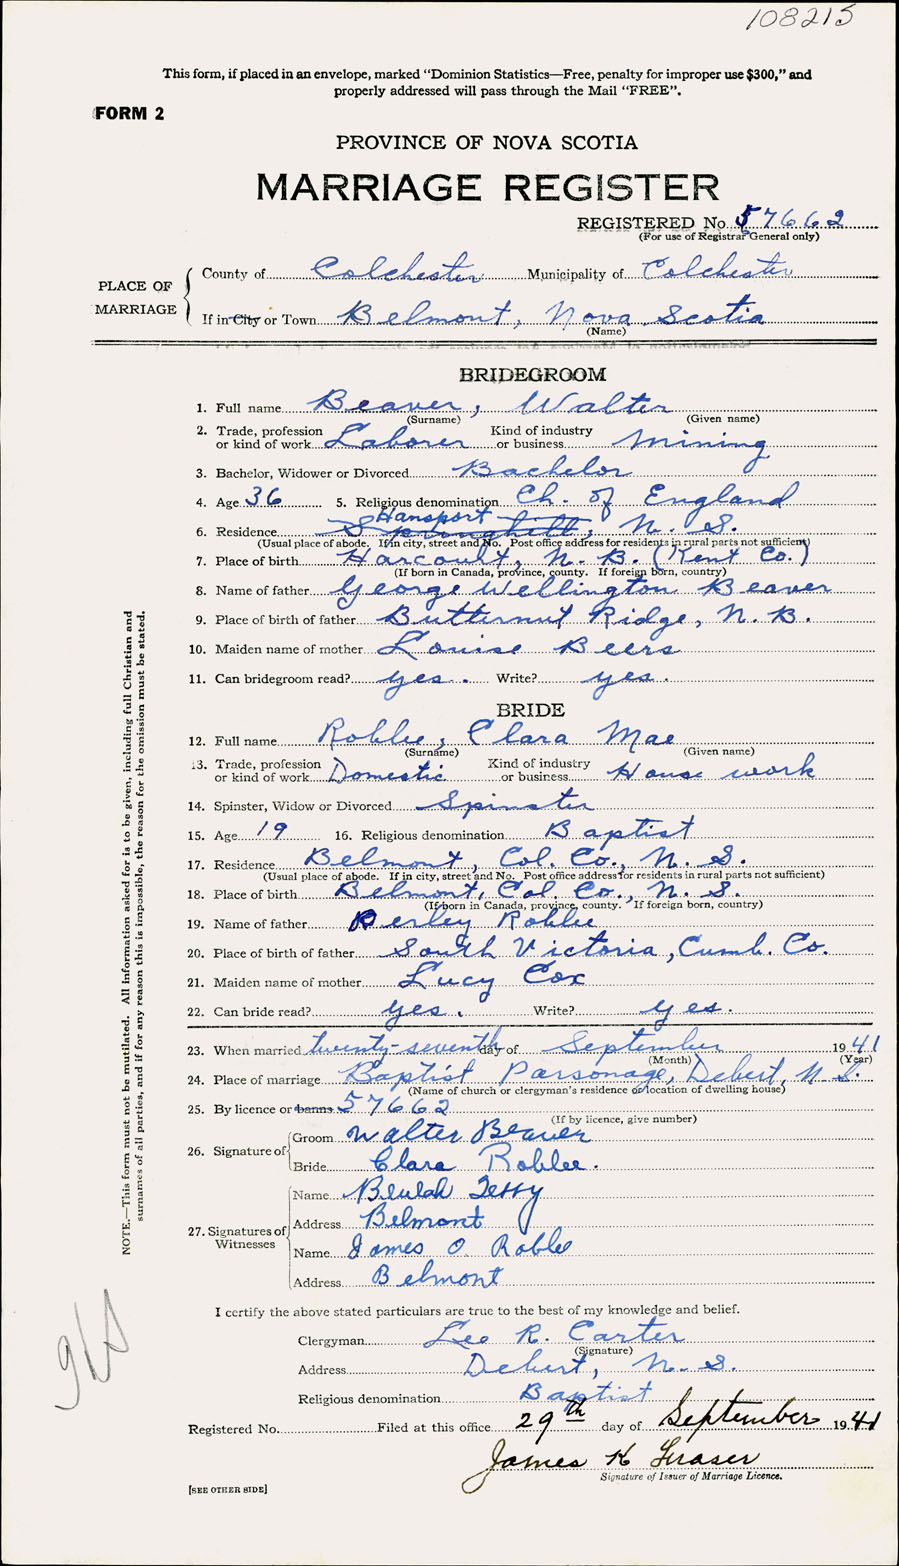 108215
This form, if placed in an envelope, marked "Dominion Statistics—Free, penalty for improper use $300," and
properly addressed will pass through the Mail "FREE".
FORM 2
PROVINCE OF NOVA SCOTIA
MARRIAGE REGISTER
REGISTERED No. 57662
(For use of Registrar General only)
PLACE OF MARRIAGE
County of Colchester Municipality of Colchester
If in City or Town Belmont, Nova Scotia
(Name)
BRIDEGROOM
1. Full name Beaver, Walter
(Surname) (Given name)
2. Trade, profession or kind of work Laborer Kind of industry or business Mining
3. Bachelor, Widower or Divorced Bachelor
4. Age 36 5. Religious denomination Ch. of England
Hansport
6. Residence Springhill, N. S.
(Usual place of abode. If in city, street and No. Post office address for residents in rural parts not sufficient)
7. Place of birth Harcourt, N. B. (Kent Co.)
(If born in Canada, province, county. If foreign born, country)
8. Name of father George Wellington Beaver
9. Place of birth of father Butternut Ridge, N. B.
10. Maiden name of mother Louise Beers
11. Can bridegroom read? yes. Write? yes.
BRIDE
12. Full name Roblee, Clara Mae
(Surname) (Given name)
13. Trade, profession or kind of work Domestic Kind of industry or business House work
14. Spinster, Widow or Divorced Spinster
15. Age 19 16. Religious denomination Baptist
17. Residence Belmont, Col. Co., N. S.
(Usual place of abode. If in city, street and No. Post office address for residents in rural parts not sufficient)
18. Place of birth Belmont, Col. Co., N. S.
(If born in Canada, province, county. If foreign born, country)
19. Name of father Perley Roblee
20. Place of birth of father South Victoria, Cumb. Co.
21. Maiden name of mother Lucy Cox
22. Can bride read? yes. Write? yes.
23. When married twenty-seventh day of September 1941
(Month) (Year)
24. Place of marriage Baptist Parsonage, Debert, N. S.
(Name of church or clergyman's residence or location of dwelling house)
25. By licence or banns 57662
(If by licence, give number)
26. Signature of
Groom Walter Beaver
Bride Clara Roblee.
27. Signatures of Witnesses
Name Beulah Terry
Address Belmont
Name James O. Roblee
Address Belmont
I certify the above stated particulars are true to the best of my knowledge and belief.
Clergyman Lee R. Carter
(Signature)
Address Debert, N. S.
Religious denomination Baptist
Registered No. Filed at this office 29th day of September 1941
James K Fraser
Signature of Issuer of Marriage Licence.
[SEE OTHER SIDE]
NOTE.—This form must not be mutilated. All information asked for is to be given, including full Christian and
surnames of all parties, and if for any reason this is impossible, the reason for the omission must be stated.